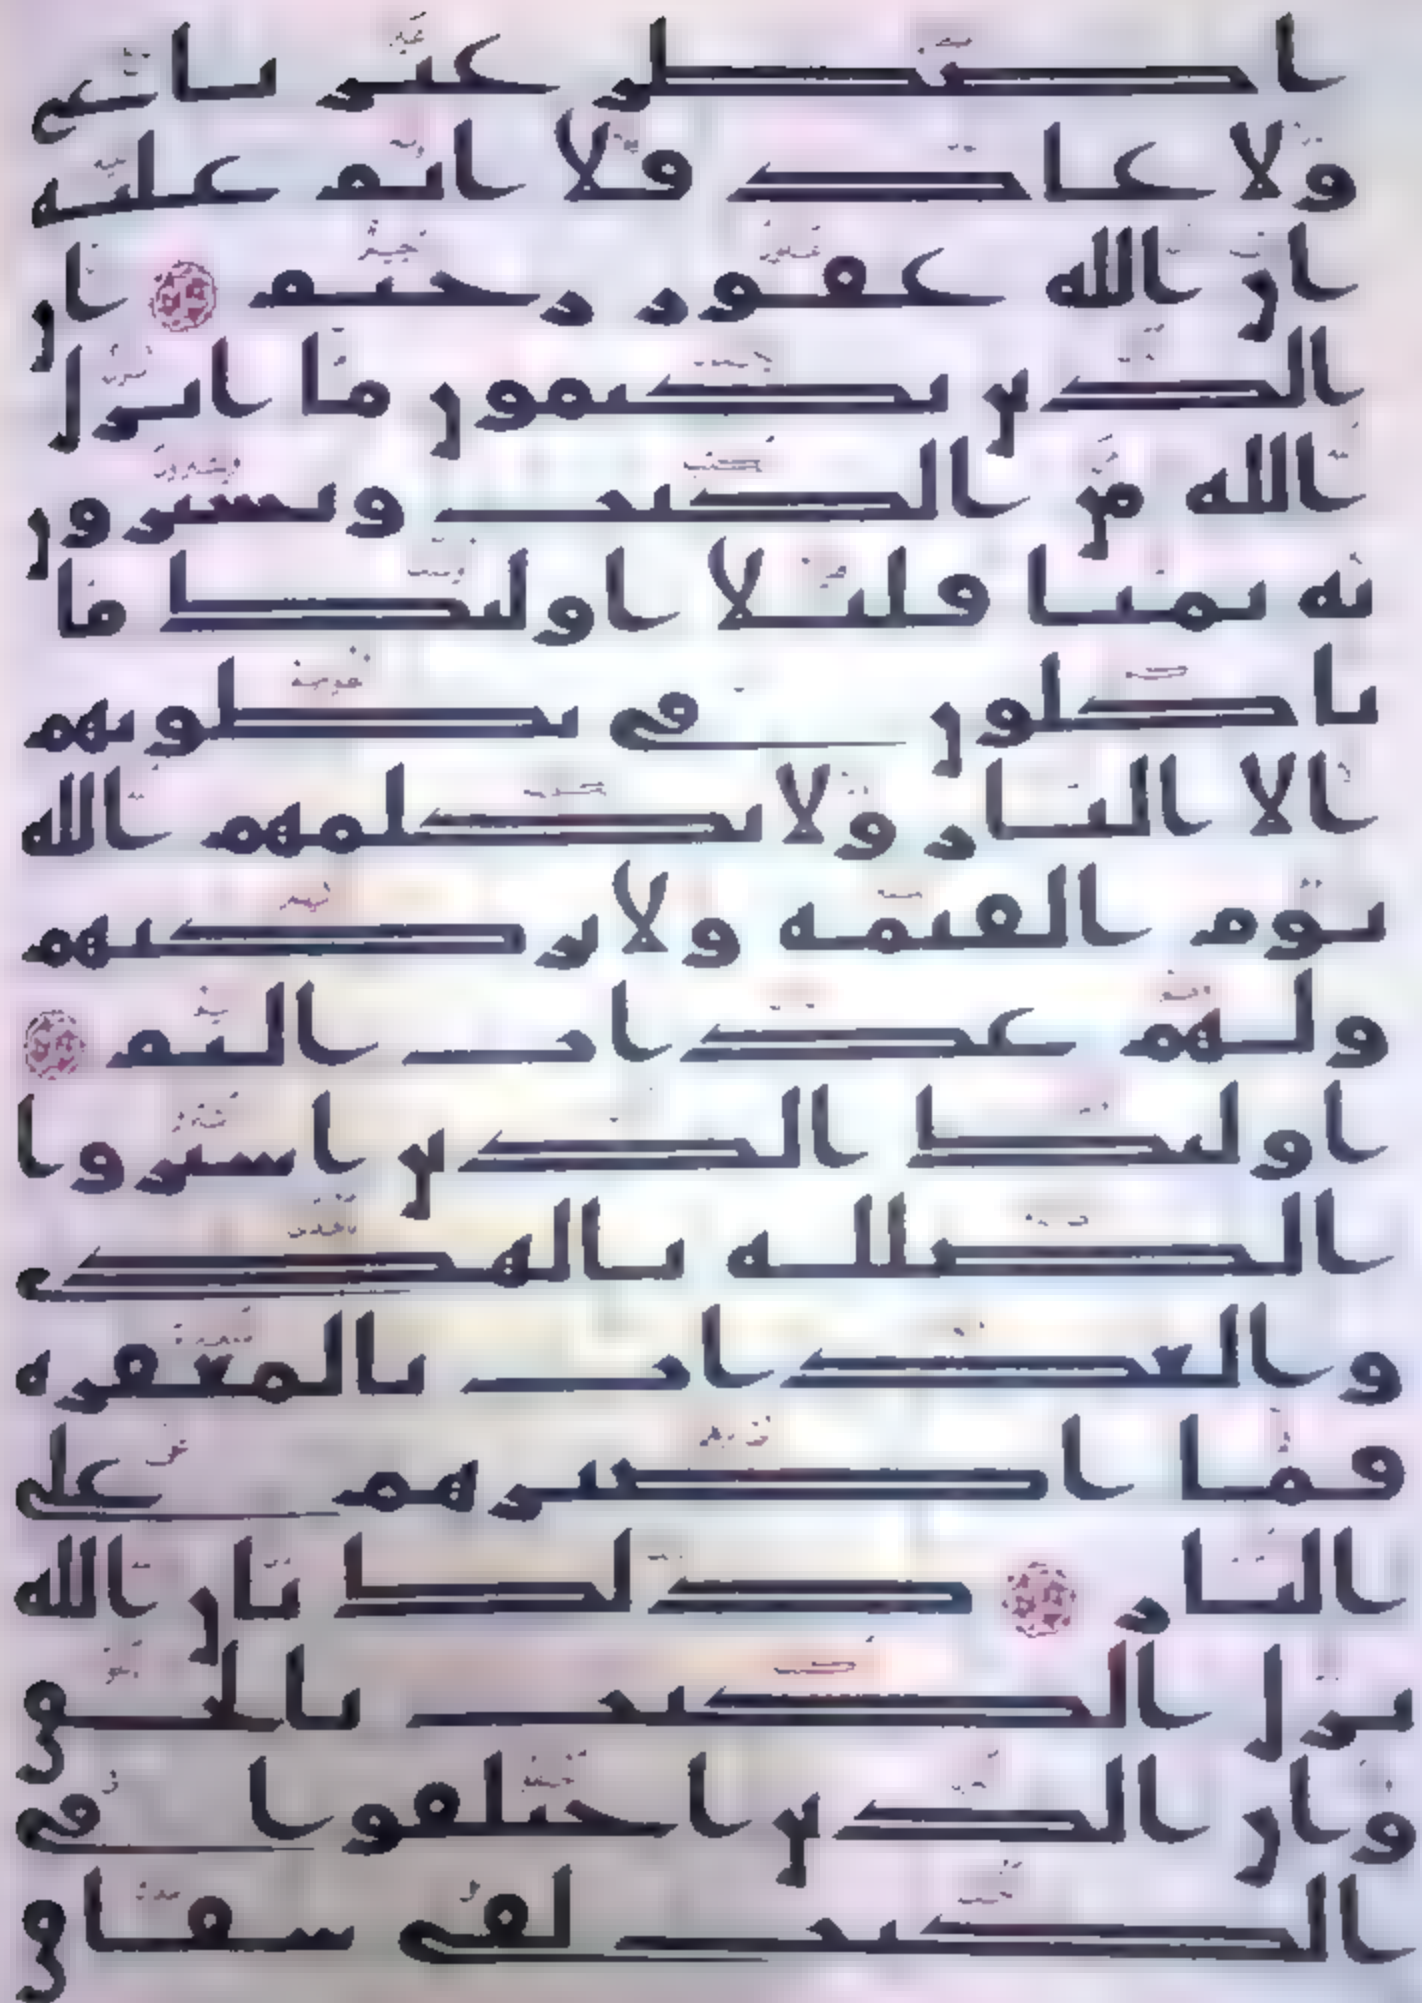 اضطر غير باغ
ولا عاد فلا اثم عليه
ان الله غفور رحيم ان
الذين يكتمون ما انزل
الله من الكتب ويشترون
به ثمنا قليلا اوليك ما
ياكلون في بطونهم
الا النار ولا يكلمهم الله
يوم القيمه ولا يزكيهم
ولهم عذاب اليم
اوليك الذين اشتروا
الضلله بالهدى
والعذاب بالمغفره
فما اصبرهم على
النار ذلك بان الله
نزل الكتب بالحق
وان الذين اختلفوا في
الكتب لفي شقاق